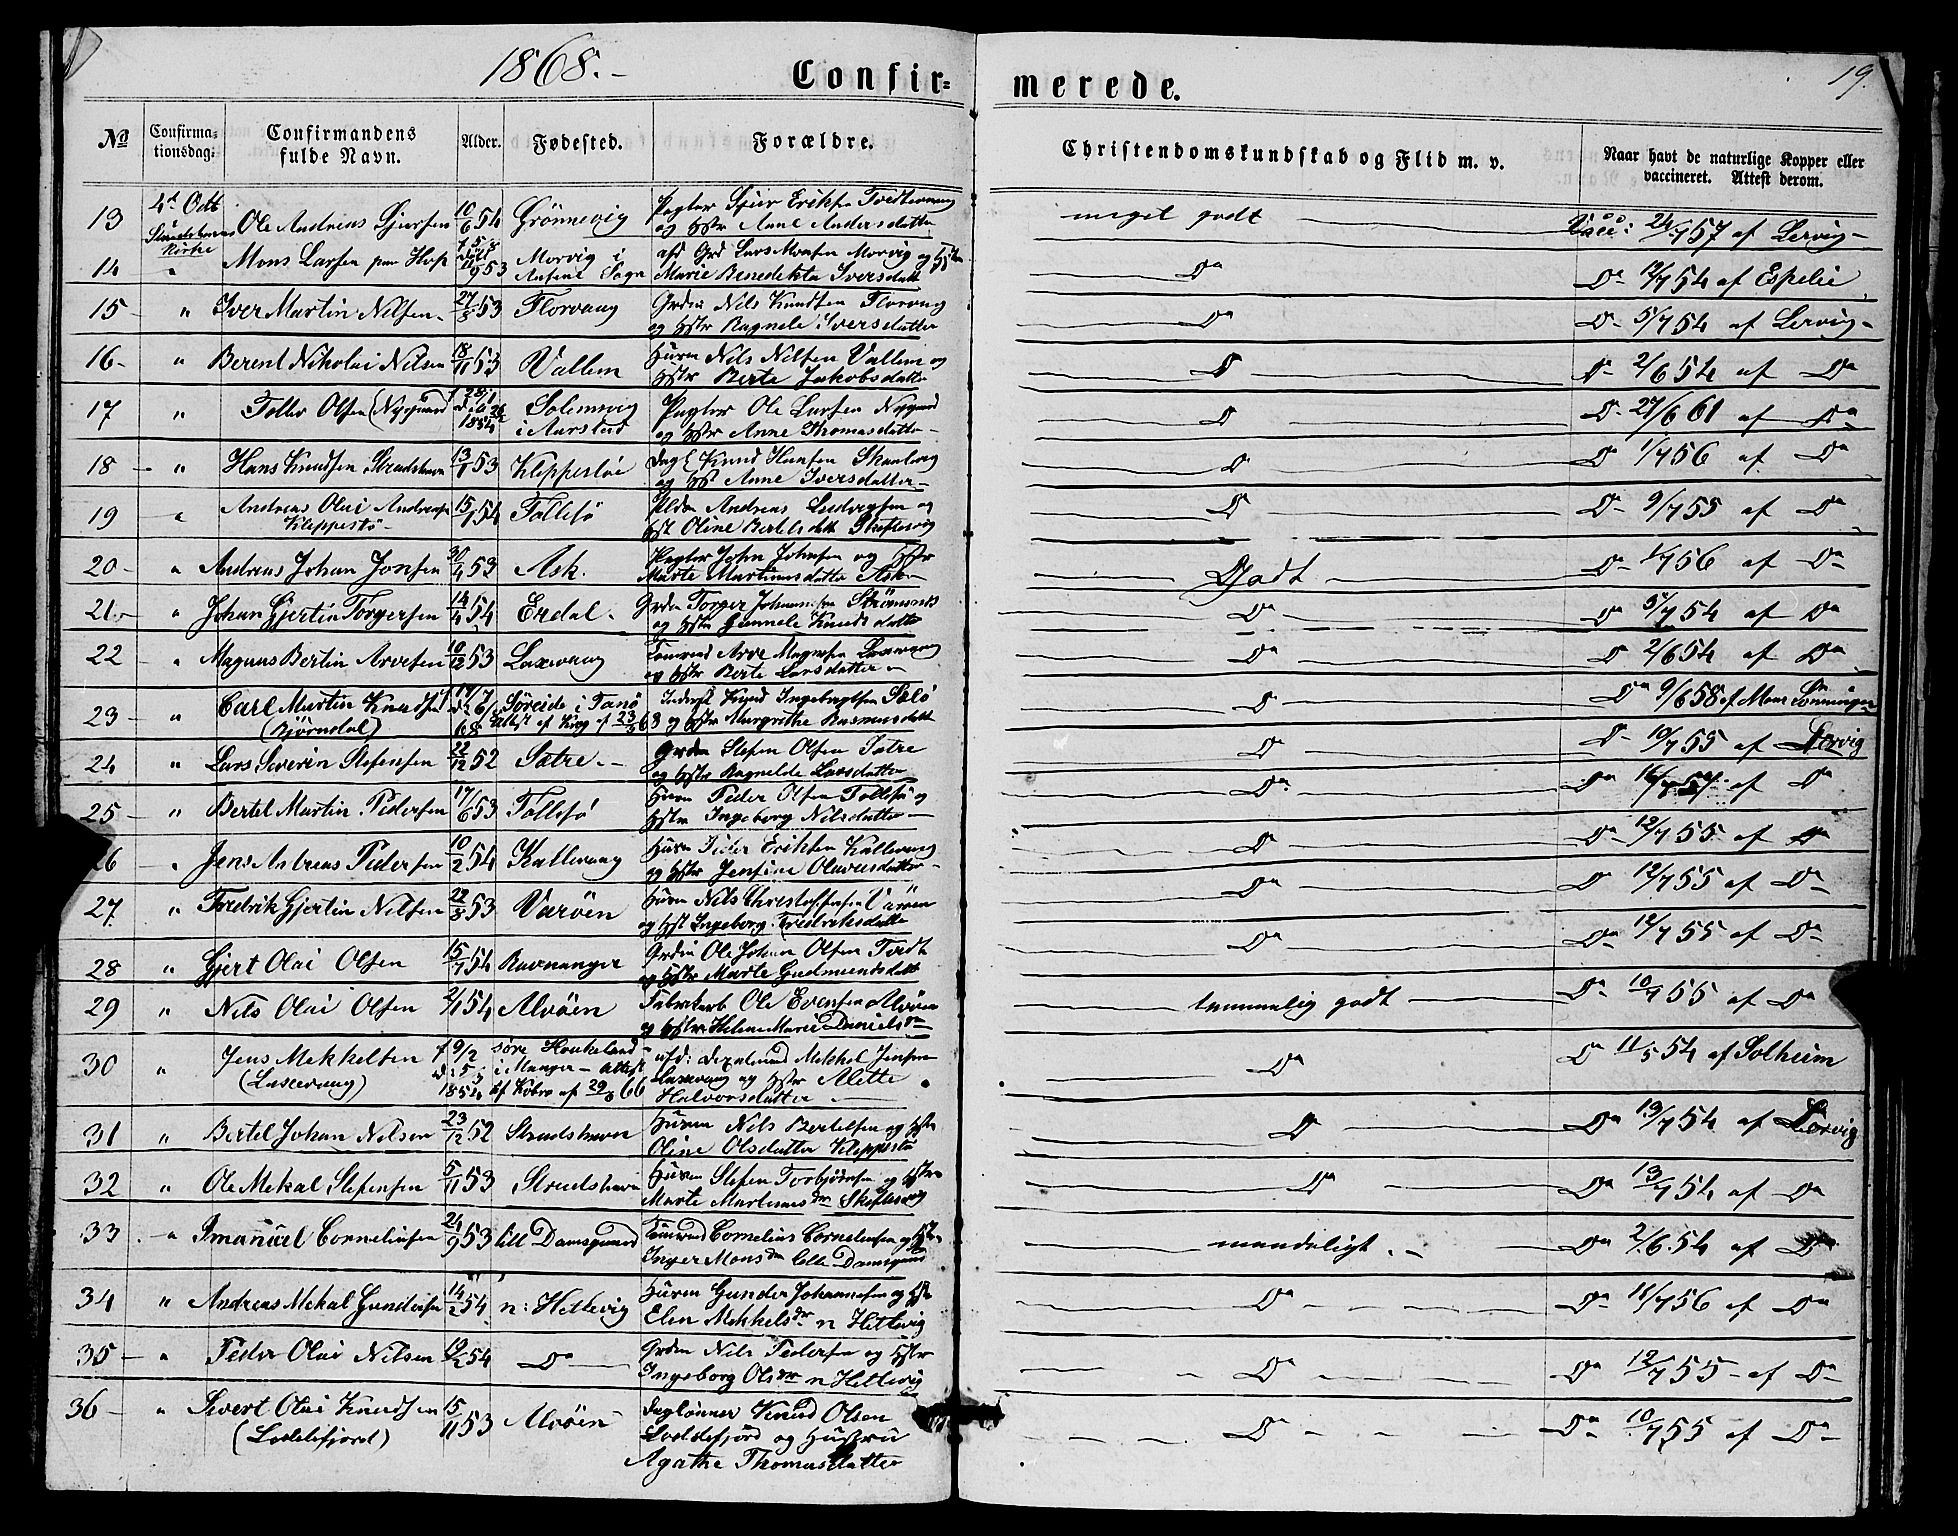 1868.-
Confir=
merede.
19.
No
Confirma=
tionsdag.
Confirmandens
fulde Navn.
Alder.
Fødested.
Forældre.
Christendomskundskab og Flid m. v.
Naar havt de naturlige Kopper eller
vaccineret. Attest derom.
13 4d Oct Ole Andreas Sjursen 10/6 54 Grönnevig
og Hstr Anne Andersdatter
meget godt
Vacc: 24/7 57 af Lervig-
Kirke
14 " Mons Larsen 53 Morvig i
Marie Benedikta Iversdatt
Do
Do 12/7 54 af Espelie
15 " Iver Martin Nilsen 27/8 53 Florvaag
Nils Knudsen Florvaag
og Hstr Ragnele Iversdatter
Do
Do 5/7 54 af Lervig-
16- " Berent Nikolai Nilsen 18/11 53 Vallem
Huusm Nils Nilsen Vallem og
Hstr Berte Jakobsdatter
D
Do 2/6 54 af Do
17 " Toller Olsen (Nygaard)
1854
Solemsvig
i Aarstad
Ole Larsen Nygaard
og Hstr Anne Thomasdatter-
D
D- 27/6 61 af Do
18 - " Hans Knudsen Strudshavn 13/1 53 Kleppestöe
Knud Hansen
og Hst Anne Iversdatter-
D
Do 1/7 56 af Do
19 " Andreas Olai Andersen
Kleppestö
15/1 54 Follesö
Andreas Ludvigsen og
Hst Oline Bertelsdatt Skeftesvig
D
Do- 9/7 55 af D
20- " Andreas Johan Jonsen 30/4 53 Ask.
John Johnsen og Hstr
Marte Martinusdatter Ask-
Godt
Do- 1/7 56 af Do
21- " Johan Gjertin Torgersen 14/4 54 Erdal.
Torger Johannesen Strømsnes
og Hstr Gunnele Knudsdatter
Do
Do 5/7 54 af Do
22 - " Magnus Bertin Arvesen 10/12 53 Laxevaag
Arve Magnesen Laxevaag
og Hstr Berte Larsdatter -
Do
D 2/6 54 af Do
23 - " Carl Martin Knudsen
(Bjørndal)
68
Søreide i Fanö
Knud Ingebrigtsen
og Hstr Margrethe Rasmusdatt
D
Do 9/6 58 af Mons Lønningen
24 " Lars Severin Stefensen 22/12 52 Sætre.-
Stefen Olsen Sætre
og Hstr Ragnelde Larsdatter
D
D- 10/7 55 af Lervig
25 - " Bertel Martin Pedersen 17/6 53 Follesö
Huusm Peder Olsen Follesö og
Hstr Ingeborg Nilsdatter -
Do
Do af Do
26 " Jens Andreas Pedersen 10/2 54 Kallevaag
Huusm Peder Eriksen Kallevaag
og Hstr Jensine Olaveesdatter-
D
Do 12/7 55 af Do
27. " Fredrik Gjertin Nilsen 22/8 53 Varöen
Huusm Nils Christoffersen Varöen
og Hst Ingeborg Fredriksdatte
Do
Do 12/7 55 af Do-
28 " Gjert Olai Olsen 15/7 54 Ravnanger
Ole Johan Olsen Tvedt
og Hstr Marte Gudmundsdatt
Do
Do- 12/7 55 af Do-
29 " Nils Olai Olsen 2/1 54 Alvöen
Fabrikarb Ole Evensen Alvöen
og Hstr Helene Marie Danielsdr
temmelig godt
Do- 10/7 55 af Do
30 " Jens Mekkelsen
(Laxevaag)
f 9/2
1854
søre Haukeland
i Manger - attest
af 29/8 66
Mekkel Jensen
Laxevaag og Hstr Alette
Halvorsdatter -
Do
Do 11/5 54 af Solheim
31 " Bertel Johan Nilsen 23/12 52 Strudshavn
Huusm Nils Bertelsen og Hstr
Oline Olsdatter Kleppestö
D
Do 13/7 54 af Lervig
32 " Ole Mekal Stefensen 5/11 53 Strudshavn
Huusm Stefen Torbjörnsen og Hstr
Marte Martinusdr Skeftesvig
Do
Do 13/7 54 af Do
33 . " Imanuel Cornelinsen 24/9 53 lill Damsgaard
Cornelius Cornelinsen og Hstr
Inger Monsdr lille Damsgaard
maadeligt.-
Do- 2/6.54 af Do
34 " Andreas Mekal Gundersen 14/2 54 n: Hettevig
Huusm Gunder Johannesen og Hstr
Elen Mekkelsdr n Hettevig
Do
Do- 11/7 56 af Do
35 - " Peder Olai Nilsen 19/2 54 Do
Nils Pedersen og Hstr
Ingeborg Olsdr n Hettevig
Do
Do 12/7 55- af Do-
36 - " Sivert Olai Knudsen
(Loddefjord)
15/11 53 Alvöen
Daglønner Knud Olsen
Loddefjord og Hustru
Agathe Thomasdatter
Do
Do- 10/7 55 af Do-